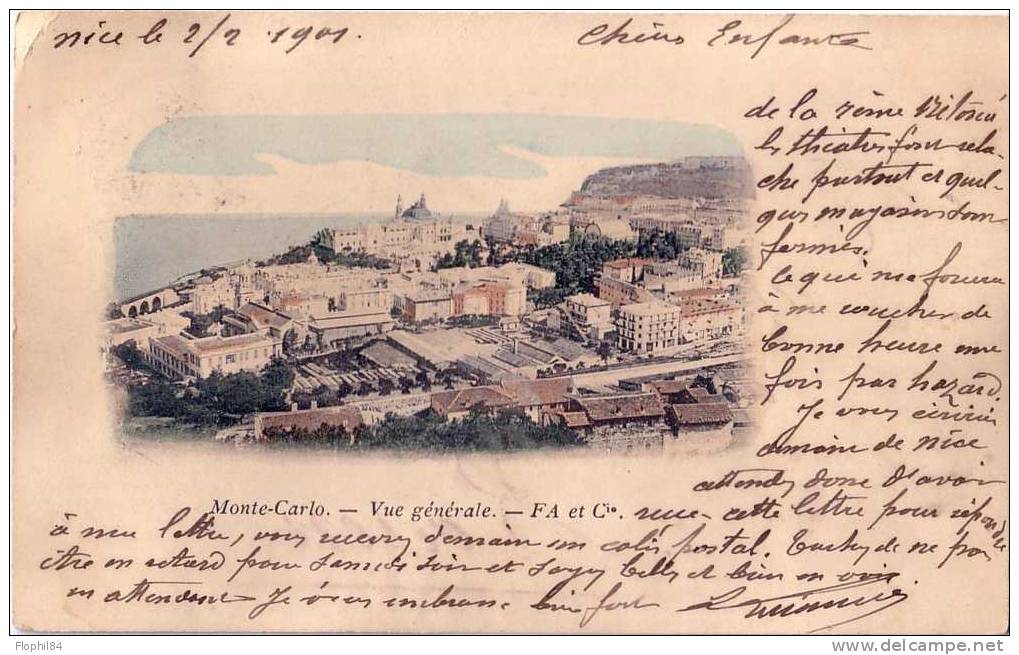 Nice le 2/2 1901.
Chers Enfants
de la reine Victoria
les théatres font rela-
che partout et quel-
ques magasins sont
fermés.
Ce qui me forcera
à me coucher de
bonne heure une
fois par hazard.
Je vous écrirai
demain de Nice
attendez donc d'avoir
Monte-Carlo. — Vue générale. — FA et Cie.
reçu cette lettre pour répondre
à ma lettre, vous recevrez demain un colis postal. Tachez de ne pas
être en retard pour Samedi soir et soyez belles et bien en voix
en attendant Je vous embrasse bien fort
Flophil84
www.delcampe.net